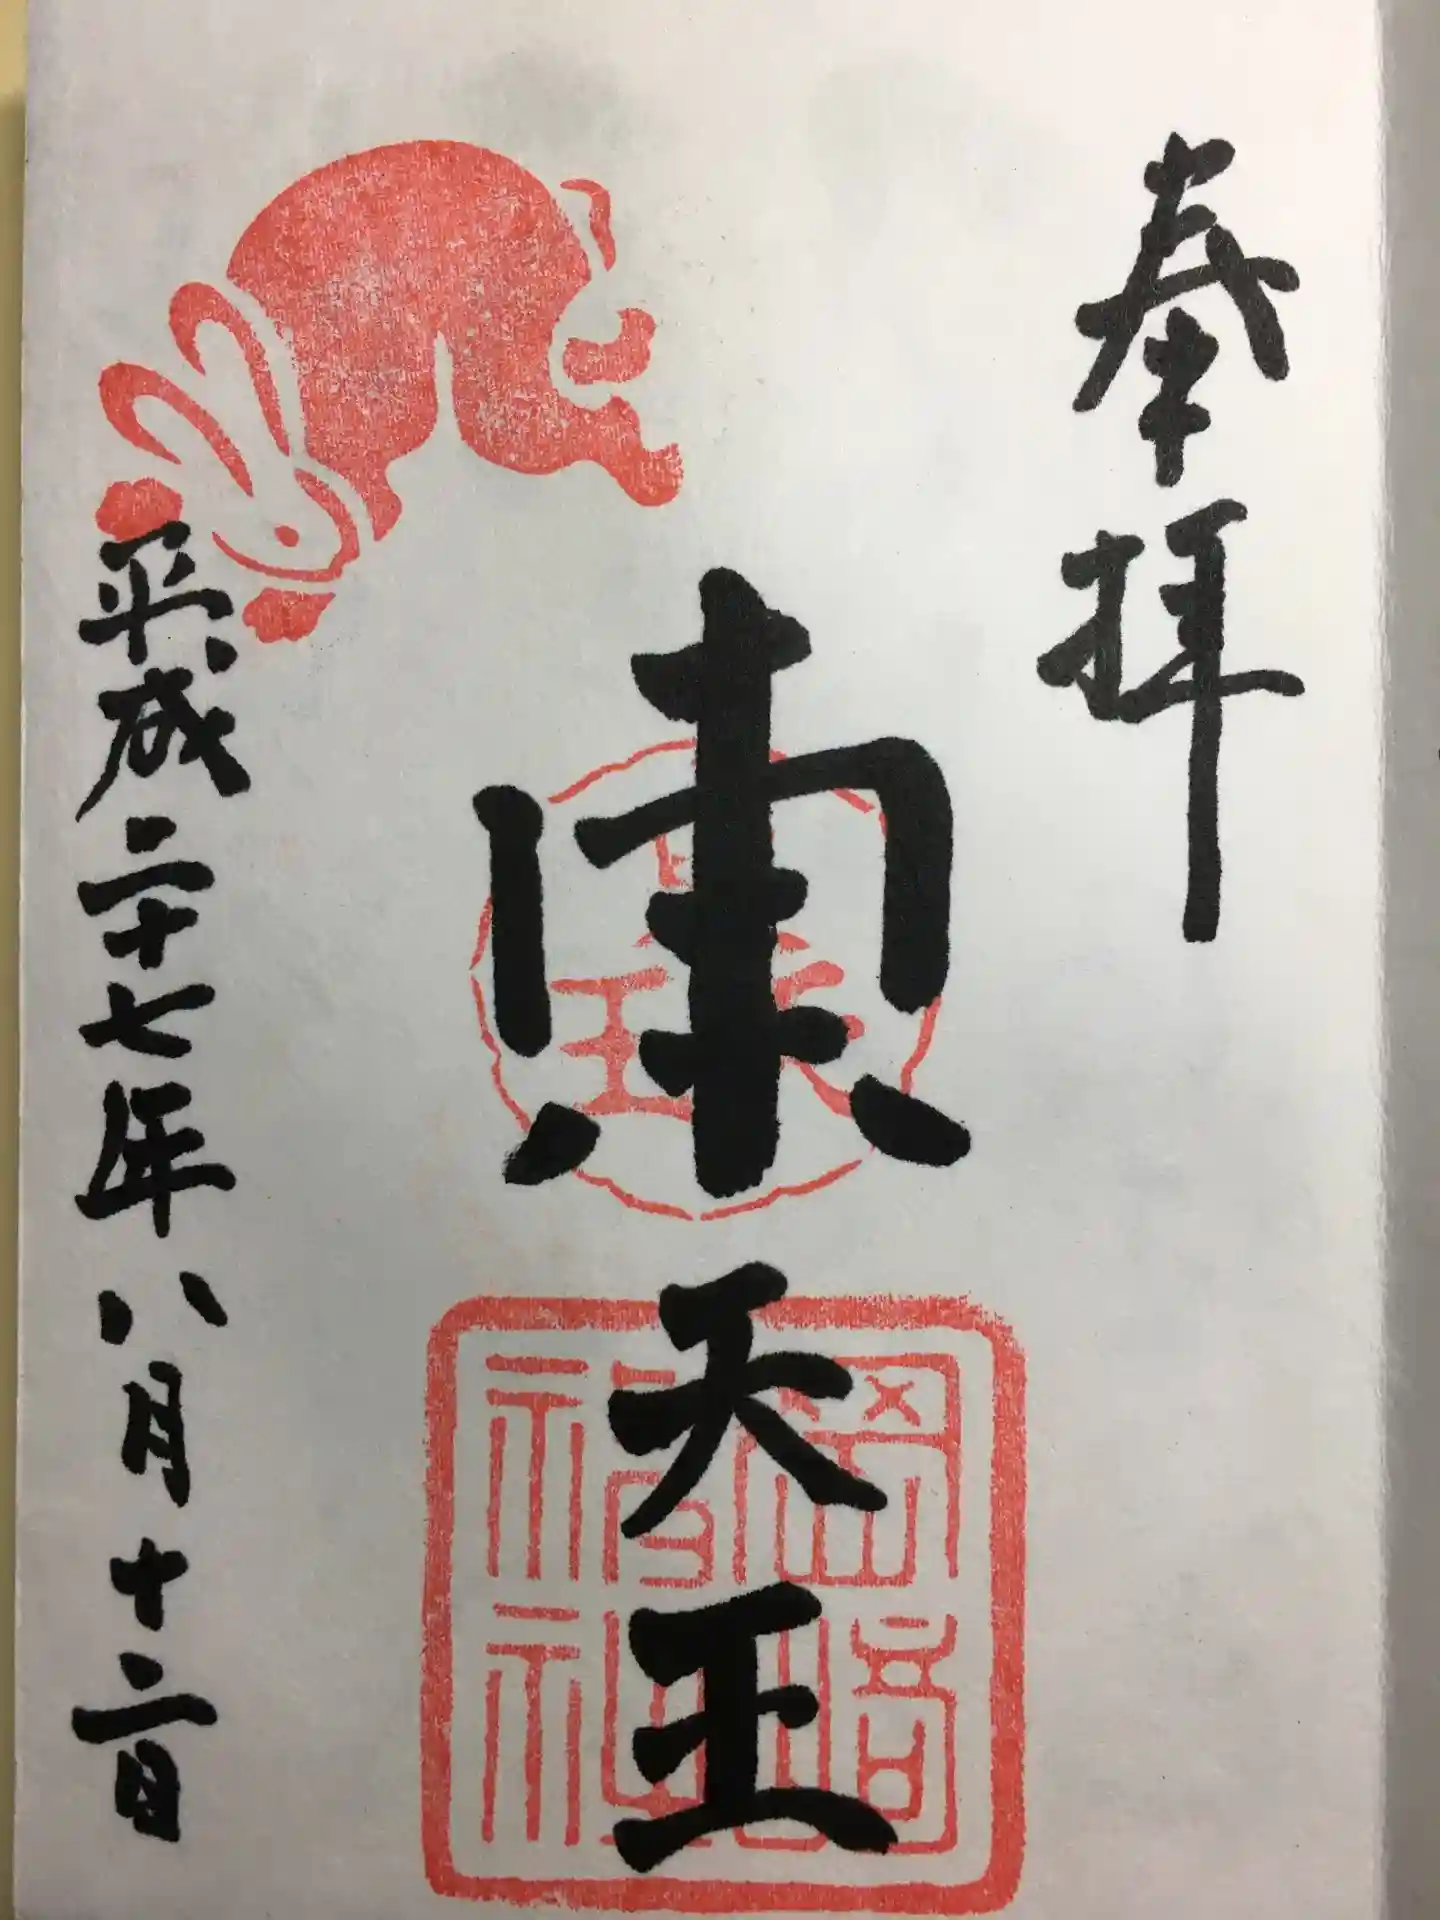 奉拝
東天王
平成二十七年八月十二日
岡崎神社